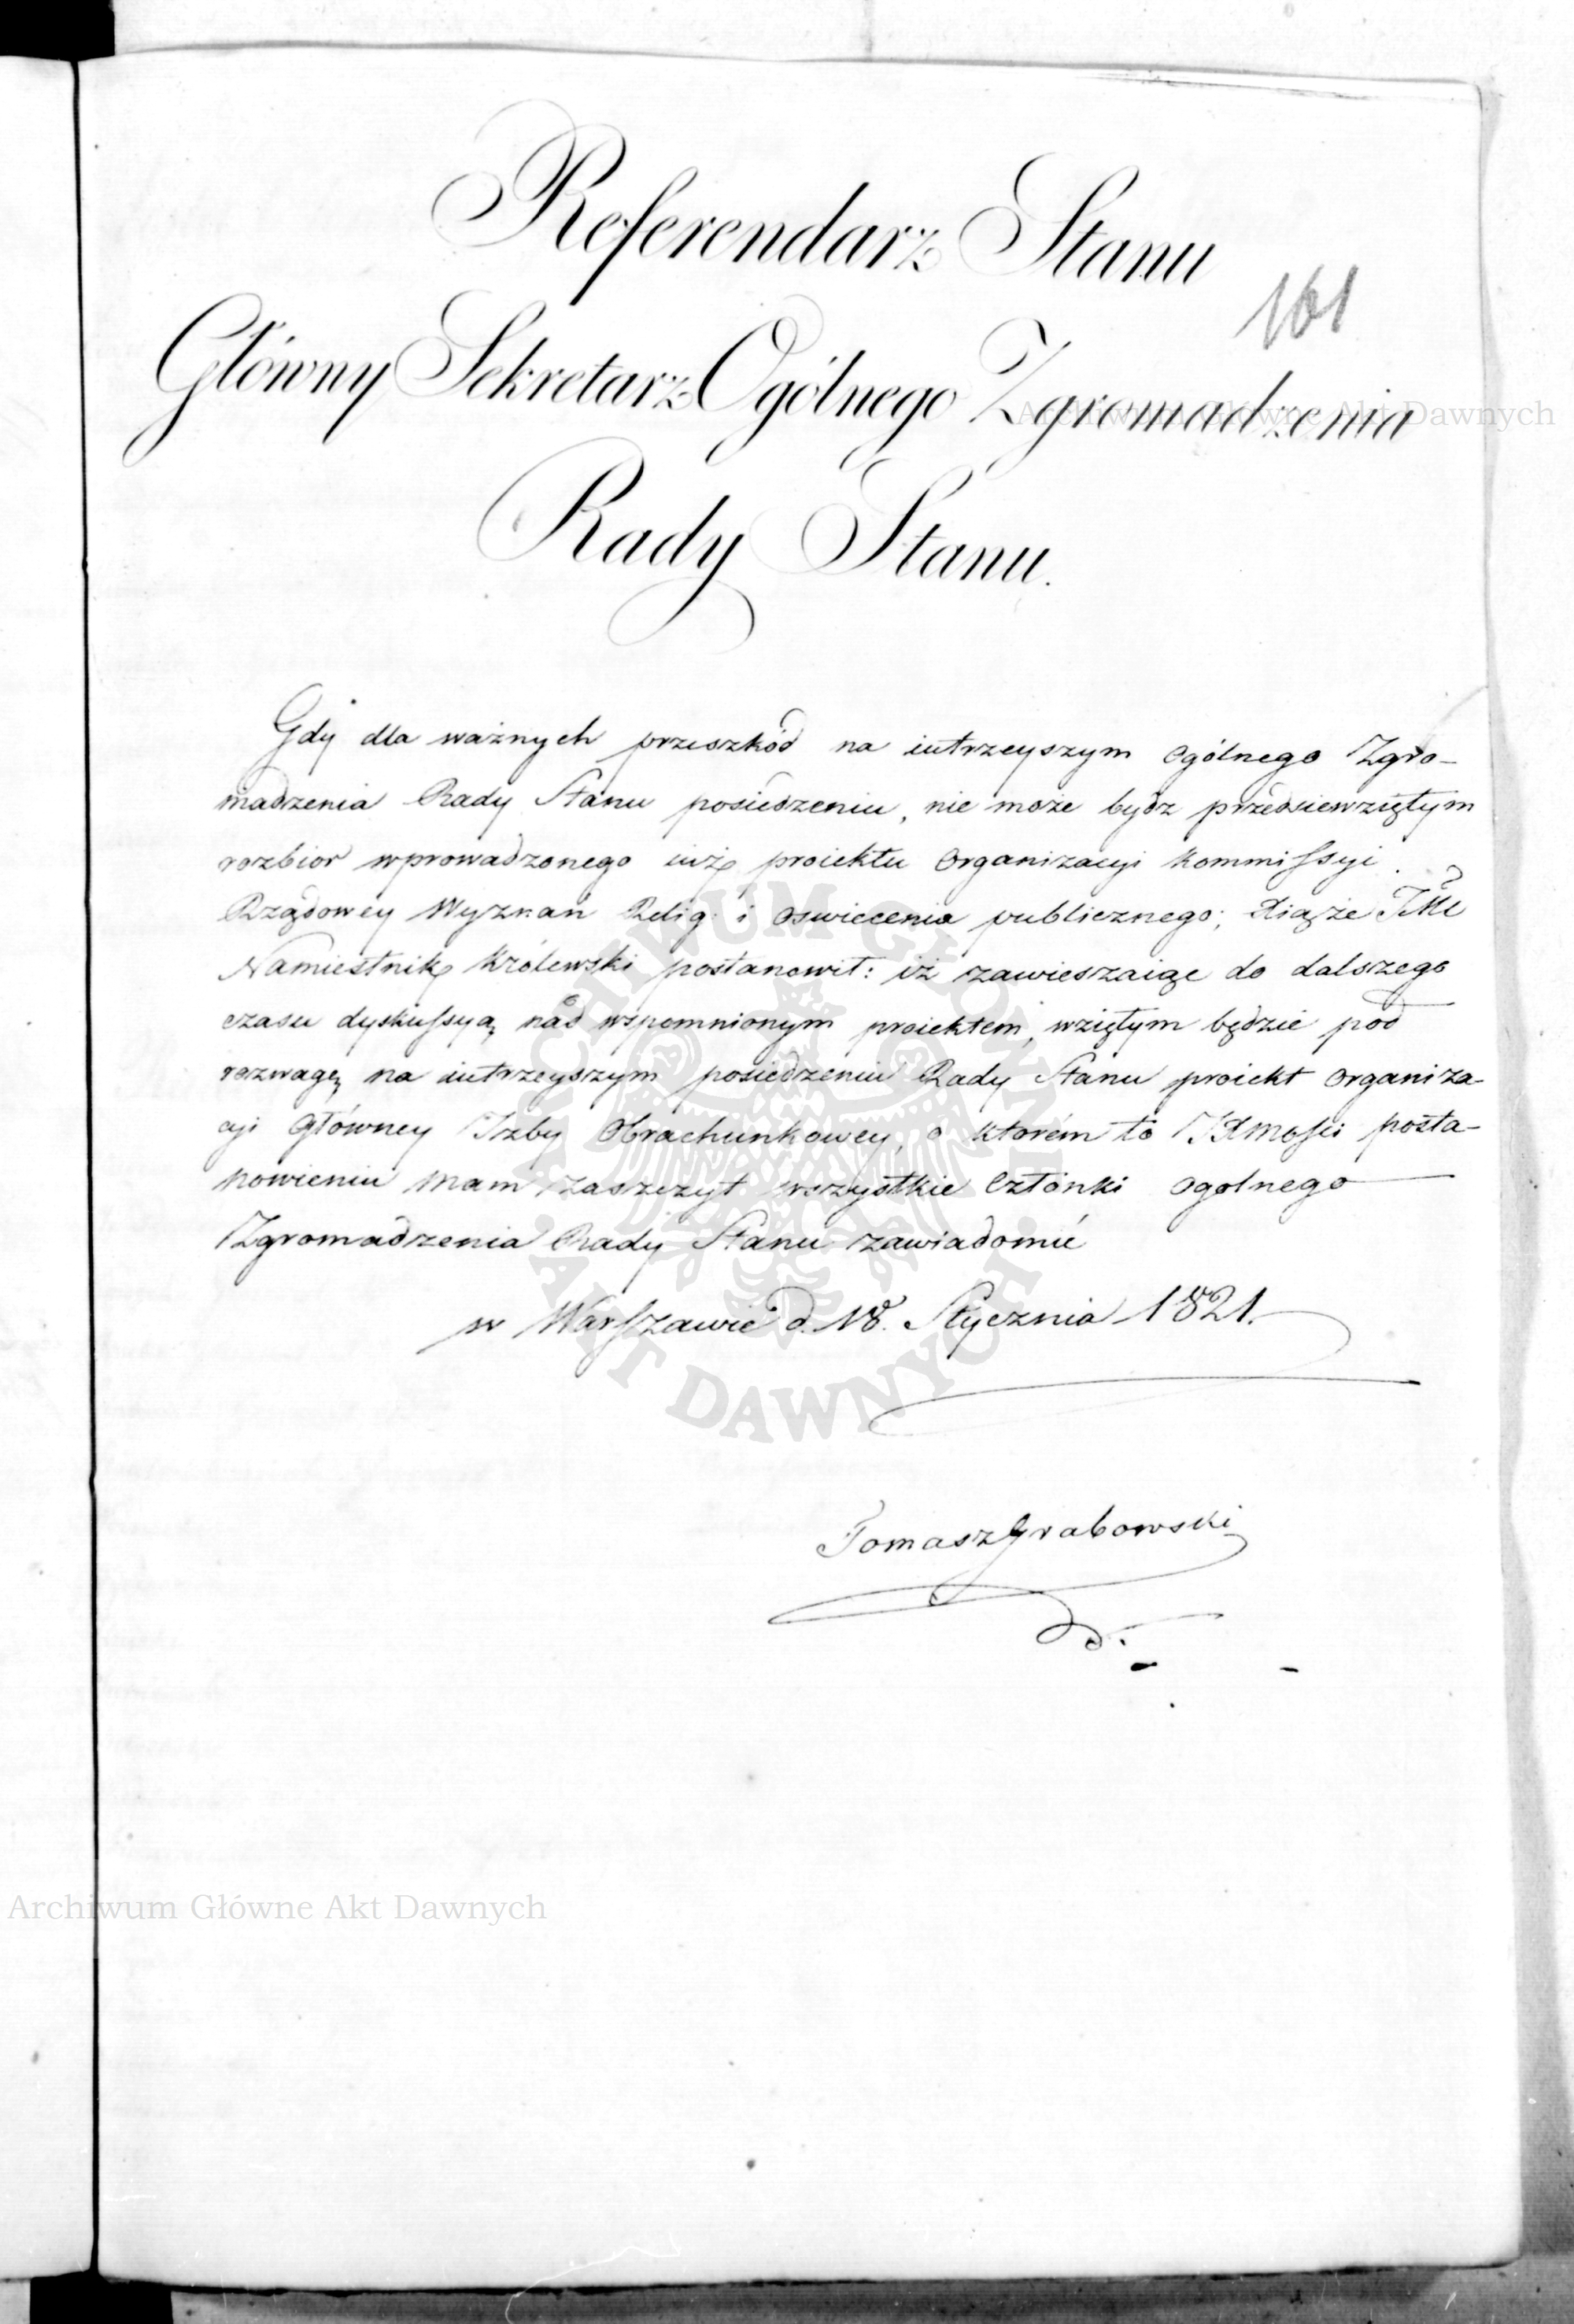 Referendarz Stanu
161
Główny Sekretarz Ogólnego Zgromadzenia
Archiwum Główne Akt Dawnych
Rady Stanu.
Gdy dla ważnych przeszkód na iutrzeyszym Ogólnego Zgro-
madzenia Rady Stanu posiedzeniu, nie może bydz przedsiewziętym
rozbior wprowadzonego iuż proiektu Organizacyi Kommissyi
Rządowey Wyznań Relig: i Oswiecenia publicznego; Xiąże
Namiestnik Królewski postanowił: iż zawieszaiąc do dalszego
czasu dyskussyą nad wspomnionym proiektem, wziętym będzie pod
rozwagę na iutrzeyszym posiedzeniu Rady Stanu proiekt Organiza-
cyi Główney Izby Obrachunkowey, o ktorém to JXMości posta-
nowieniu mam zaszczyt wszystkie Członki Ogolnego
Zgromadzenia Rady Stanu zawiadomić
w Warszawie d. 18. Stycznia 1821.
ARCHIWUM GŁÓWNE · AKT DAWNYCH ·
Tomasz Grabowski
Archiwum Główne Akt Dawnych